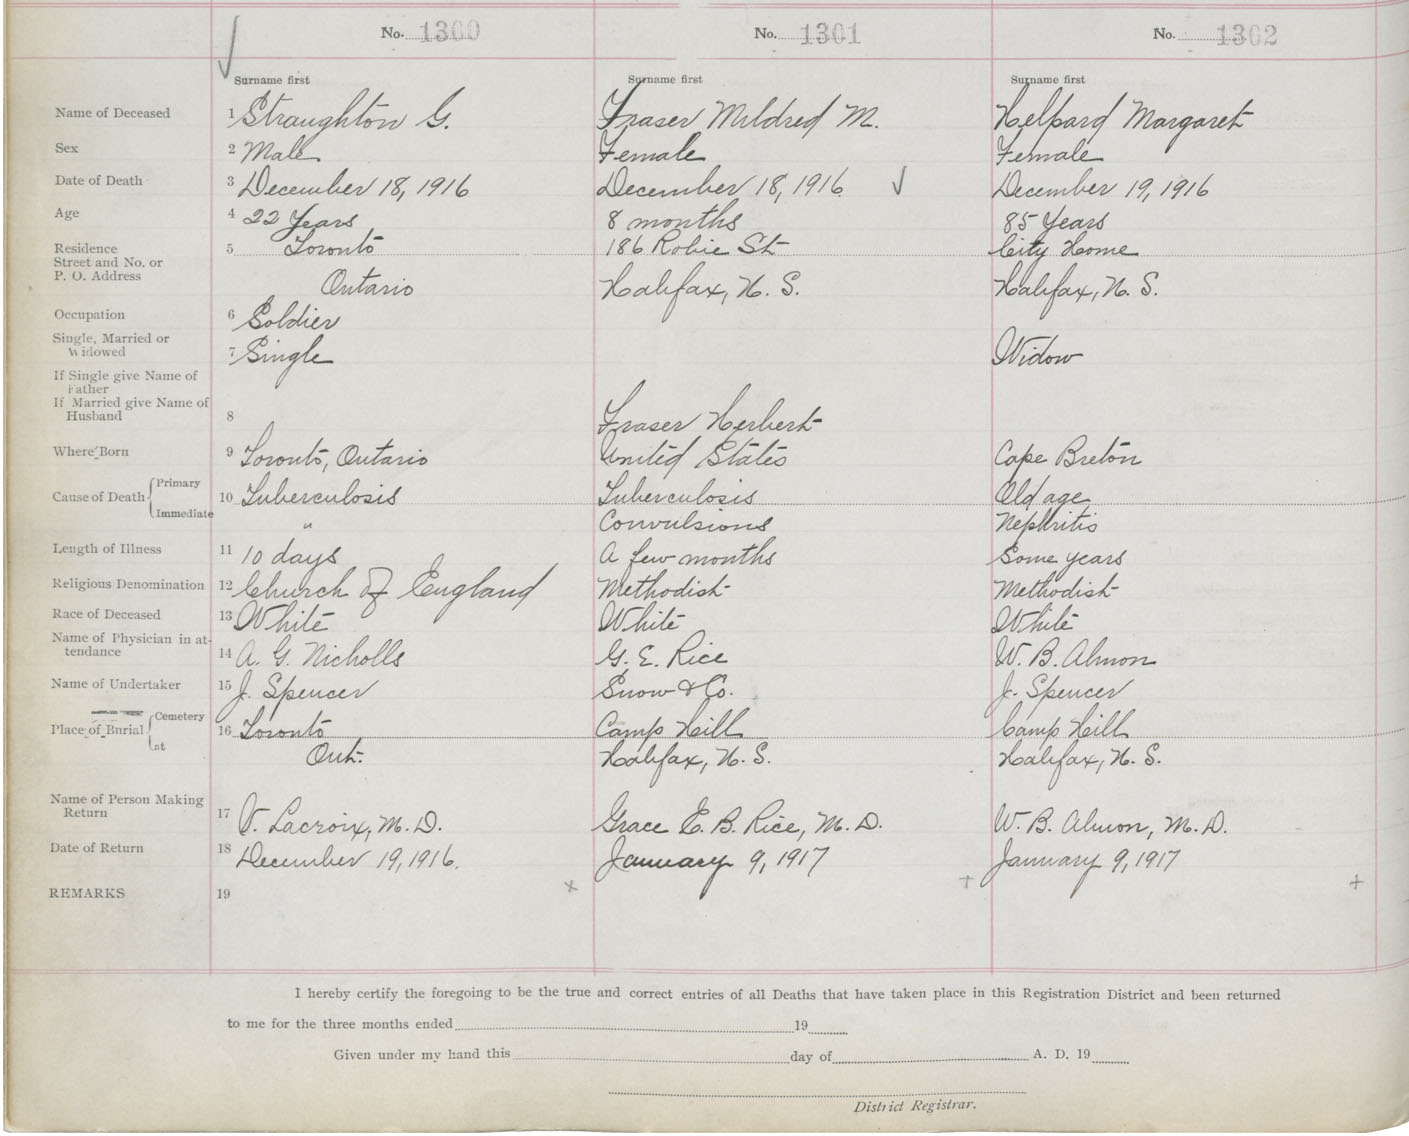 No. 1300 No. 1301 No. 1302
Surname first Surname first Surname first
Name of Deceased 1 Straughton G. Fraser Mildred M. Helpard Margaret
Sex 2 Male Female Female
Date of Death 3 December 18, 1916 December 18, 1916 December 19, 1916
Age 4 22 Years 8 months 85 Years
Residence 5 Toronto 186 Robie St City Home
Street and No. or
P. O. Address Ontario Halifax, N. S. Halifax, N. S.
Occupation 6 Soldier
Single, Married or
Widowed 7 Single Widow
If Single give Name of
Father
If Married give Name of
Husband 8 Fraser Herbert
Where Born 9 Toronto, Ontario United States Cape Breton
Cause of Death Primary 10 Tuberculosis Tuberculosis Old age
Immediate " Convulsions Nephritis
Length of Illness 11 10 days A few months Some years
Religious Denomination 12 Church of England Methodist Methodist
Race of Deceased 13 White White White
Name of Physician in at-
tendance 14 A. G. Nicholls G. E. Rice W. B. Almon
Name of Undertaker 15 J. Spencer Snow & Co. J. Spencer
Place of Burial Cemetery 16 Toronto Camp Hill Camp Hill
at Ont. Halifax, N. S. Halifax, N. S.
Name of Person Making
Return 17 V. Lacroix, M. D. Grace E. B. Rice, M. D. W. B. Almon, M. D.
Date of Return 18 December 19, 1916. January 9, 1917 January 9, 1917
REMARKS 19 x + +
I hereby certify the foregoing to be the true and correct entries of all Deaths that have taken place in this Registration District and been returned
to me for the three months ended 19
Given under my hand this day of A. D. 19
District Registrar.